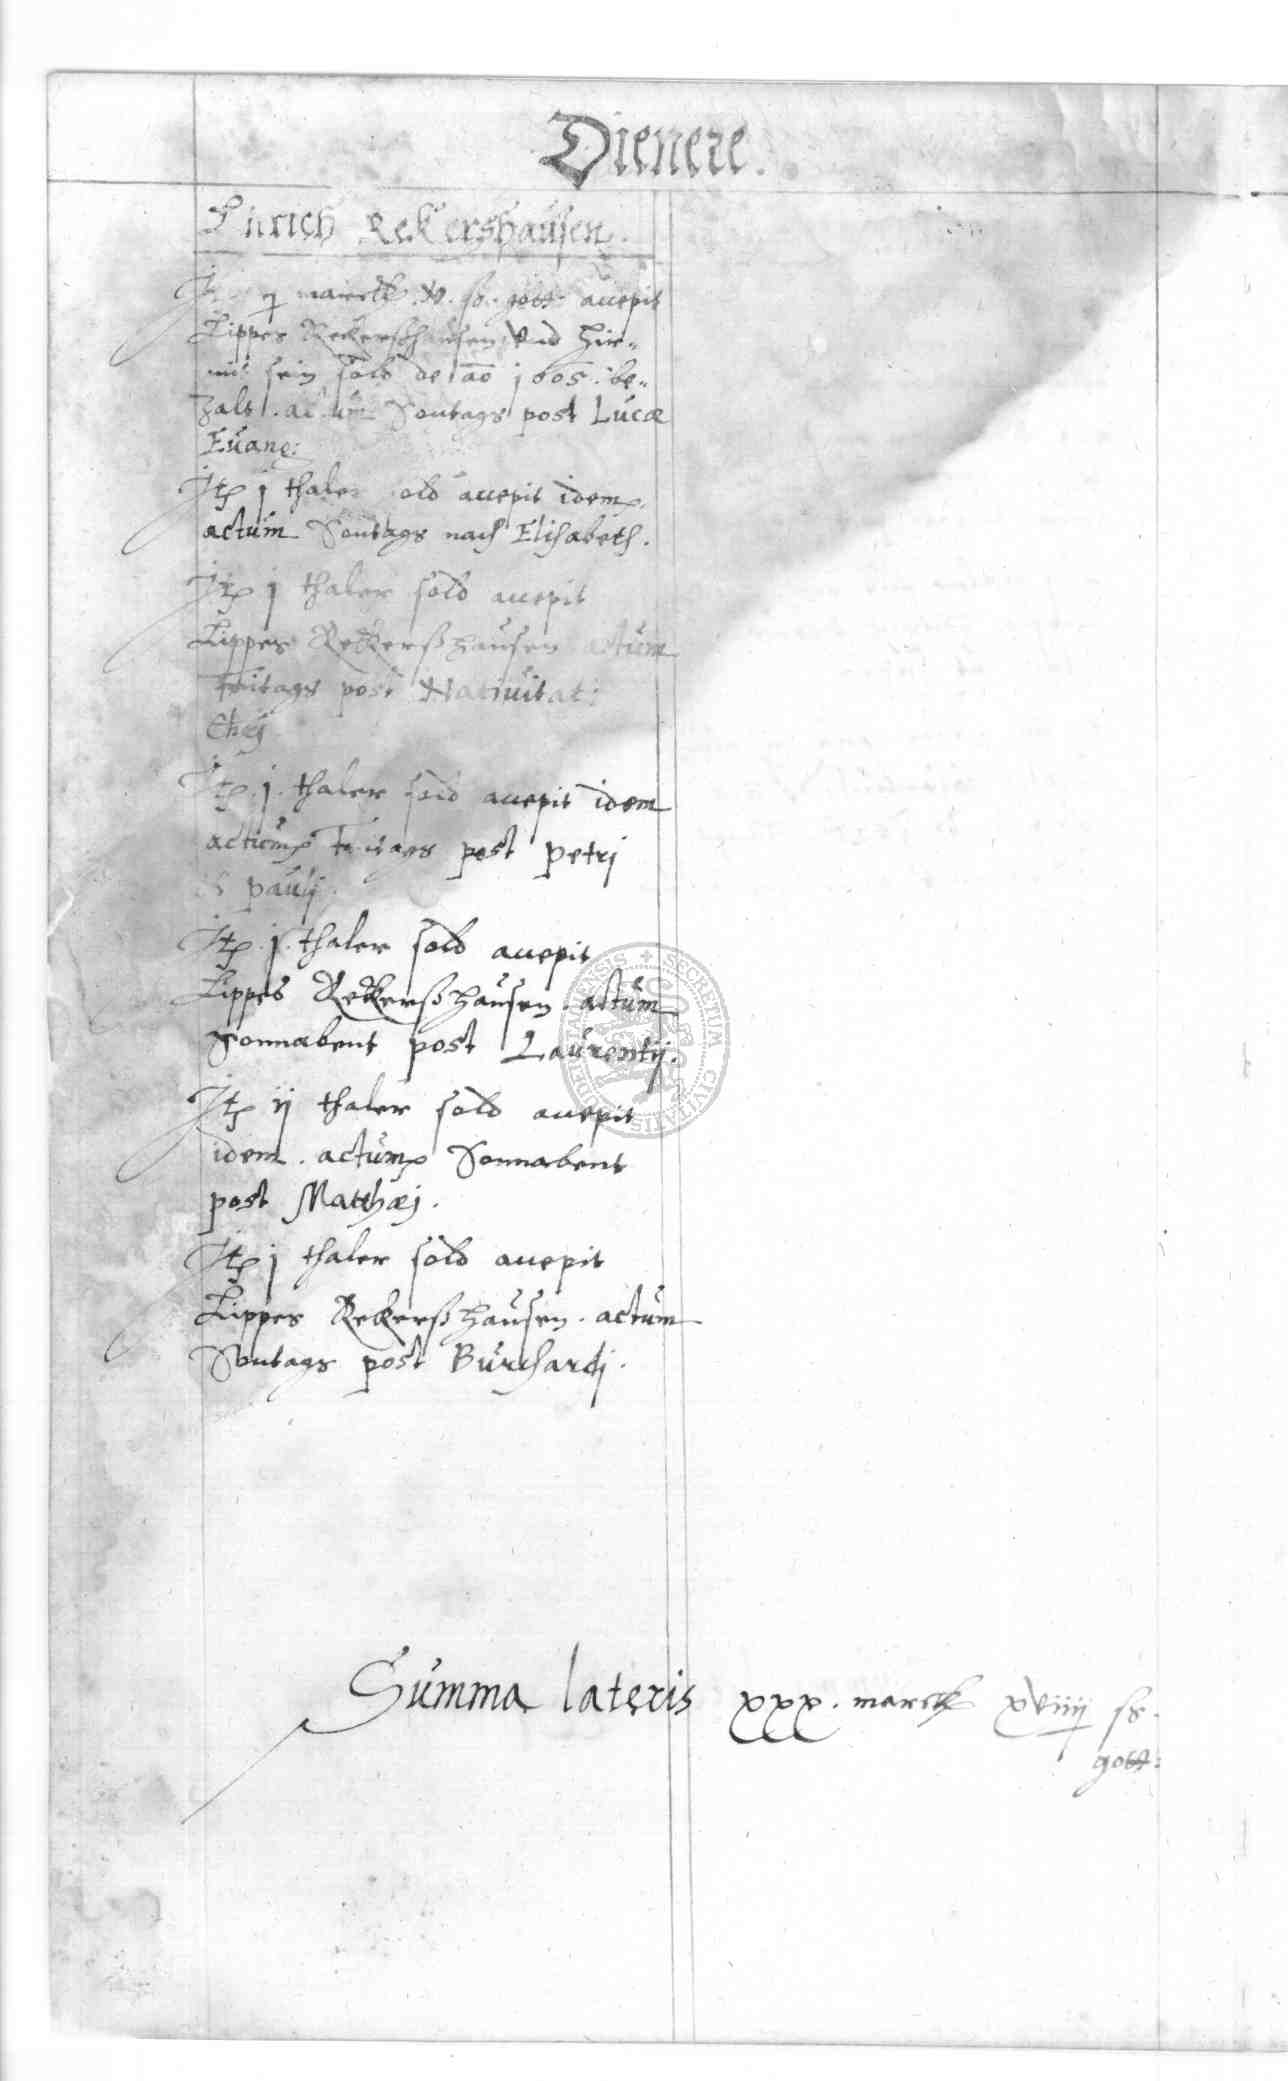 Dienere.
Henrich Rekershausen.
marck gott: accepit
Lippes Rekerßhausen und hie-
mit sein sold de ao 1605. be-
zalt. actum Sontags post Lucæ
Evang:
Itp j thaler sold accepit idem.
actum Sontags nach Elisabeth.
Itp j thaler sold accepit
Lippes Rekerßhausen actum
Freitags post Nativitat:
Chrj
Itp. j. thaler sold accepit idem
actump Freitags post Petrj
et Paulj.
Itp. j. thaler sold accepit
Lippes Rekerßhausen. actum
Sonnabent post Laurentij.
Itp ij thaler sold accepit
idem. actump Sonnabent
post Matthæj.
Itp j thaler sold accepit
Lippes Rekerßhausen. actum
Sontags post Burchardj.
Summa lateris xxx. marck xviiij ss.
gott:
SECRETUM CIVITATIS